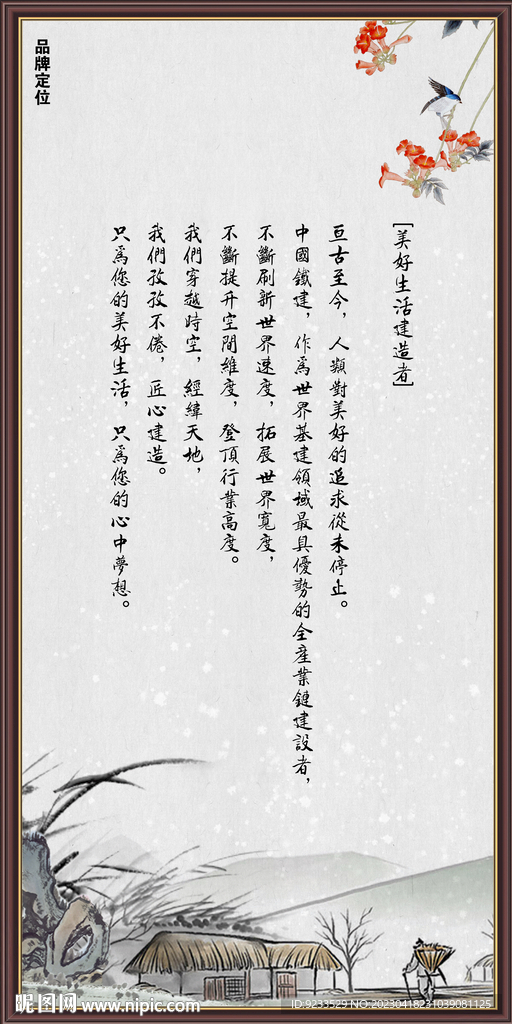 品牌定位
[美好生活建造者]
亘古至今，人類對美好的追求從未停止。
中國鐵建，作爲世界基建領域最具優勢的全産業鏈建設者，
不斷刷新世界速度，拓展世界寬度，
不斷提升空間維度，登頂行業高度。
我們穿越時空，經緯天地，
我們孜孜不倦，匠心建造。
只爲您的美好生活，只爲您的心中夢想。
昵图网 www.nipic.com
ID:9233529 NO:20230418231039081125